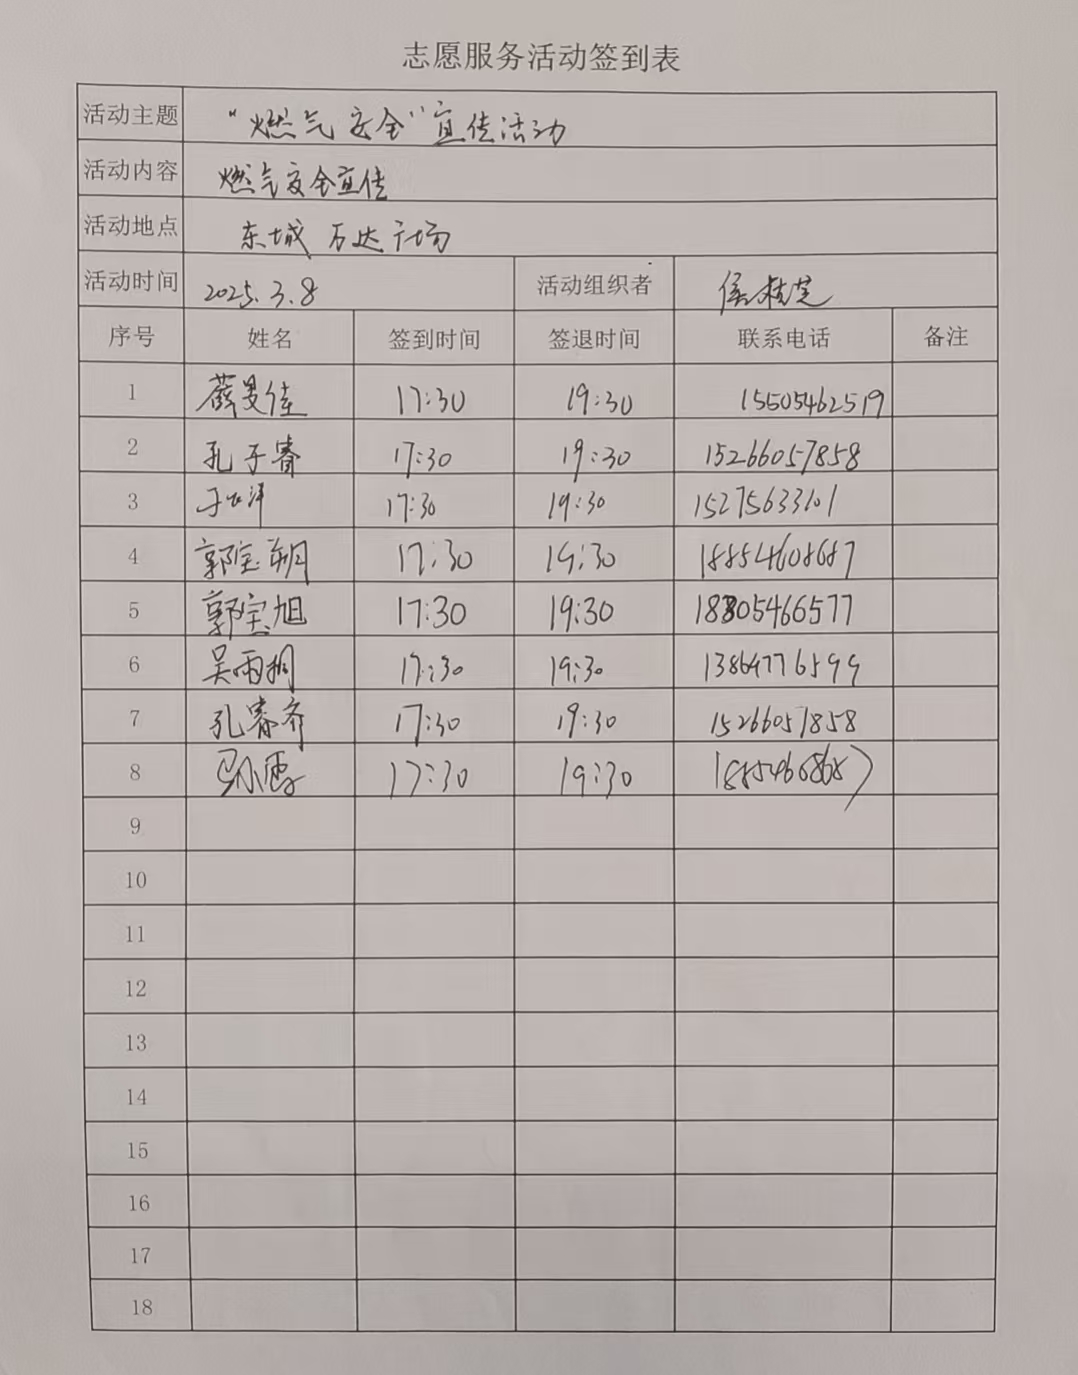 志愿服务活动签到表
活动主题 “燃气安全”宣传活动
活动内容 燃气安全宣传
活动地点 东城万达广场
活动时间 2025.3.8 活动组织者 侯桂芝
序号 姓名 签到时间 签退时间 联系电话 备注
1 薛旻佳 17:30 19:30 15505462519
2 孔子睿 17:30 19:30 15266057858
3 17:30 19:30 15275633101
4 郭宝朔 17:30 19:30 18854608687
5 郭宝旭 17:30 19:30 18805466577
6 吴雨桐 17:30 19:30 13864776599
7 孔睿齐 17:30 19:30 15266057858
8 17:30 19:30
9
10
11
12
13
14
15
16
17
18